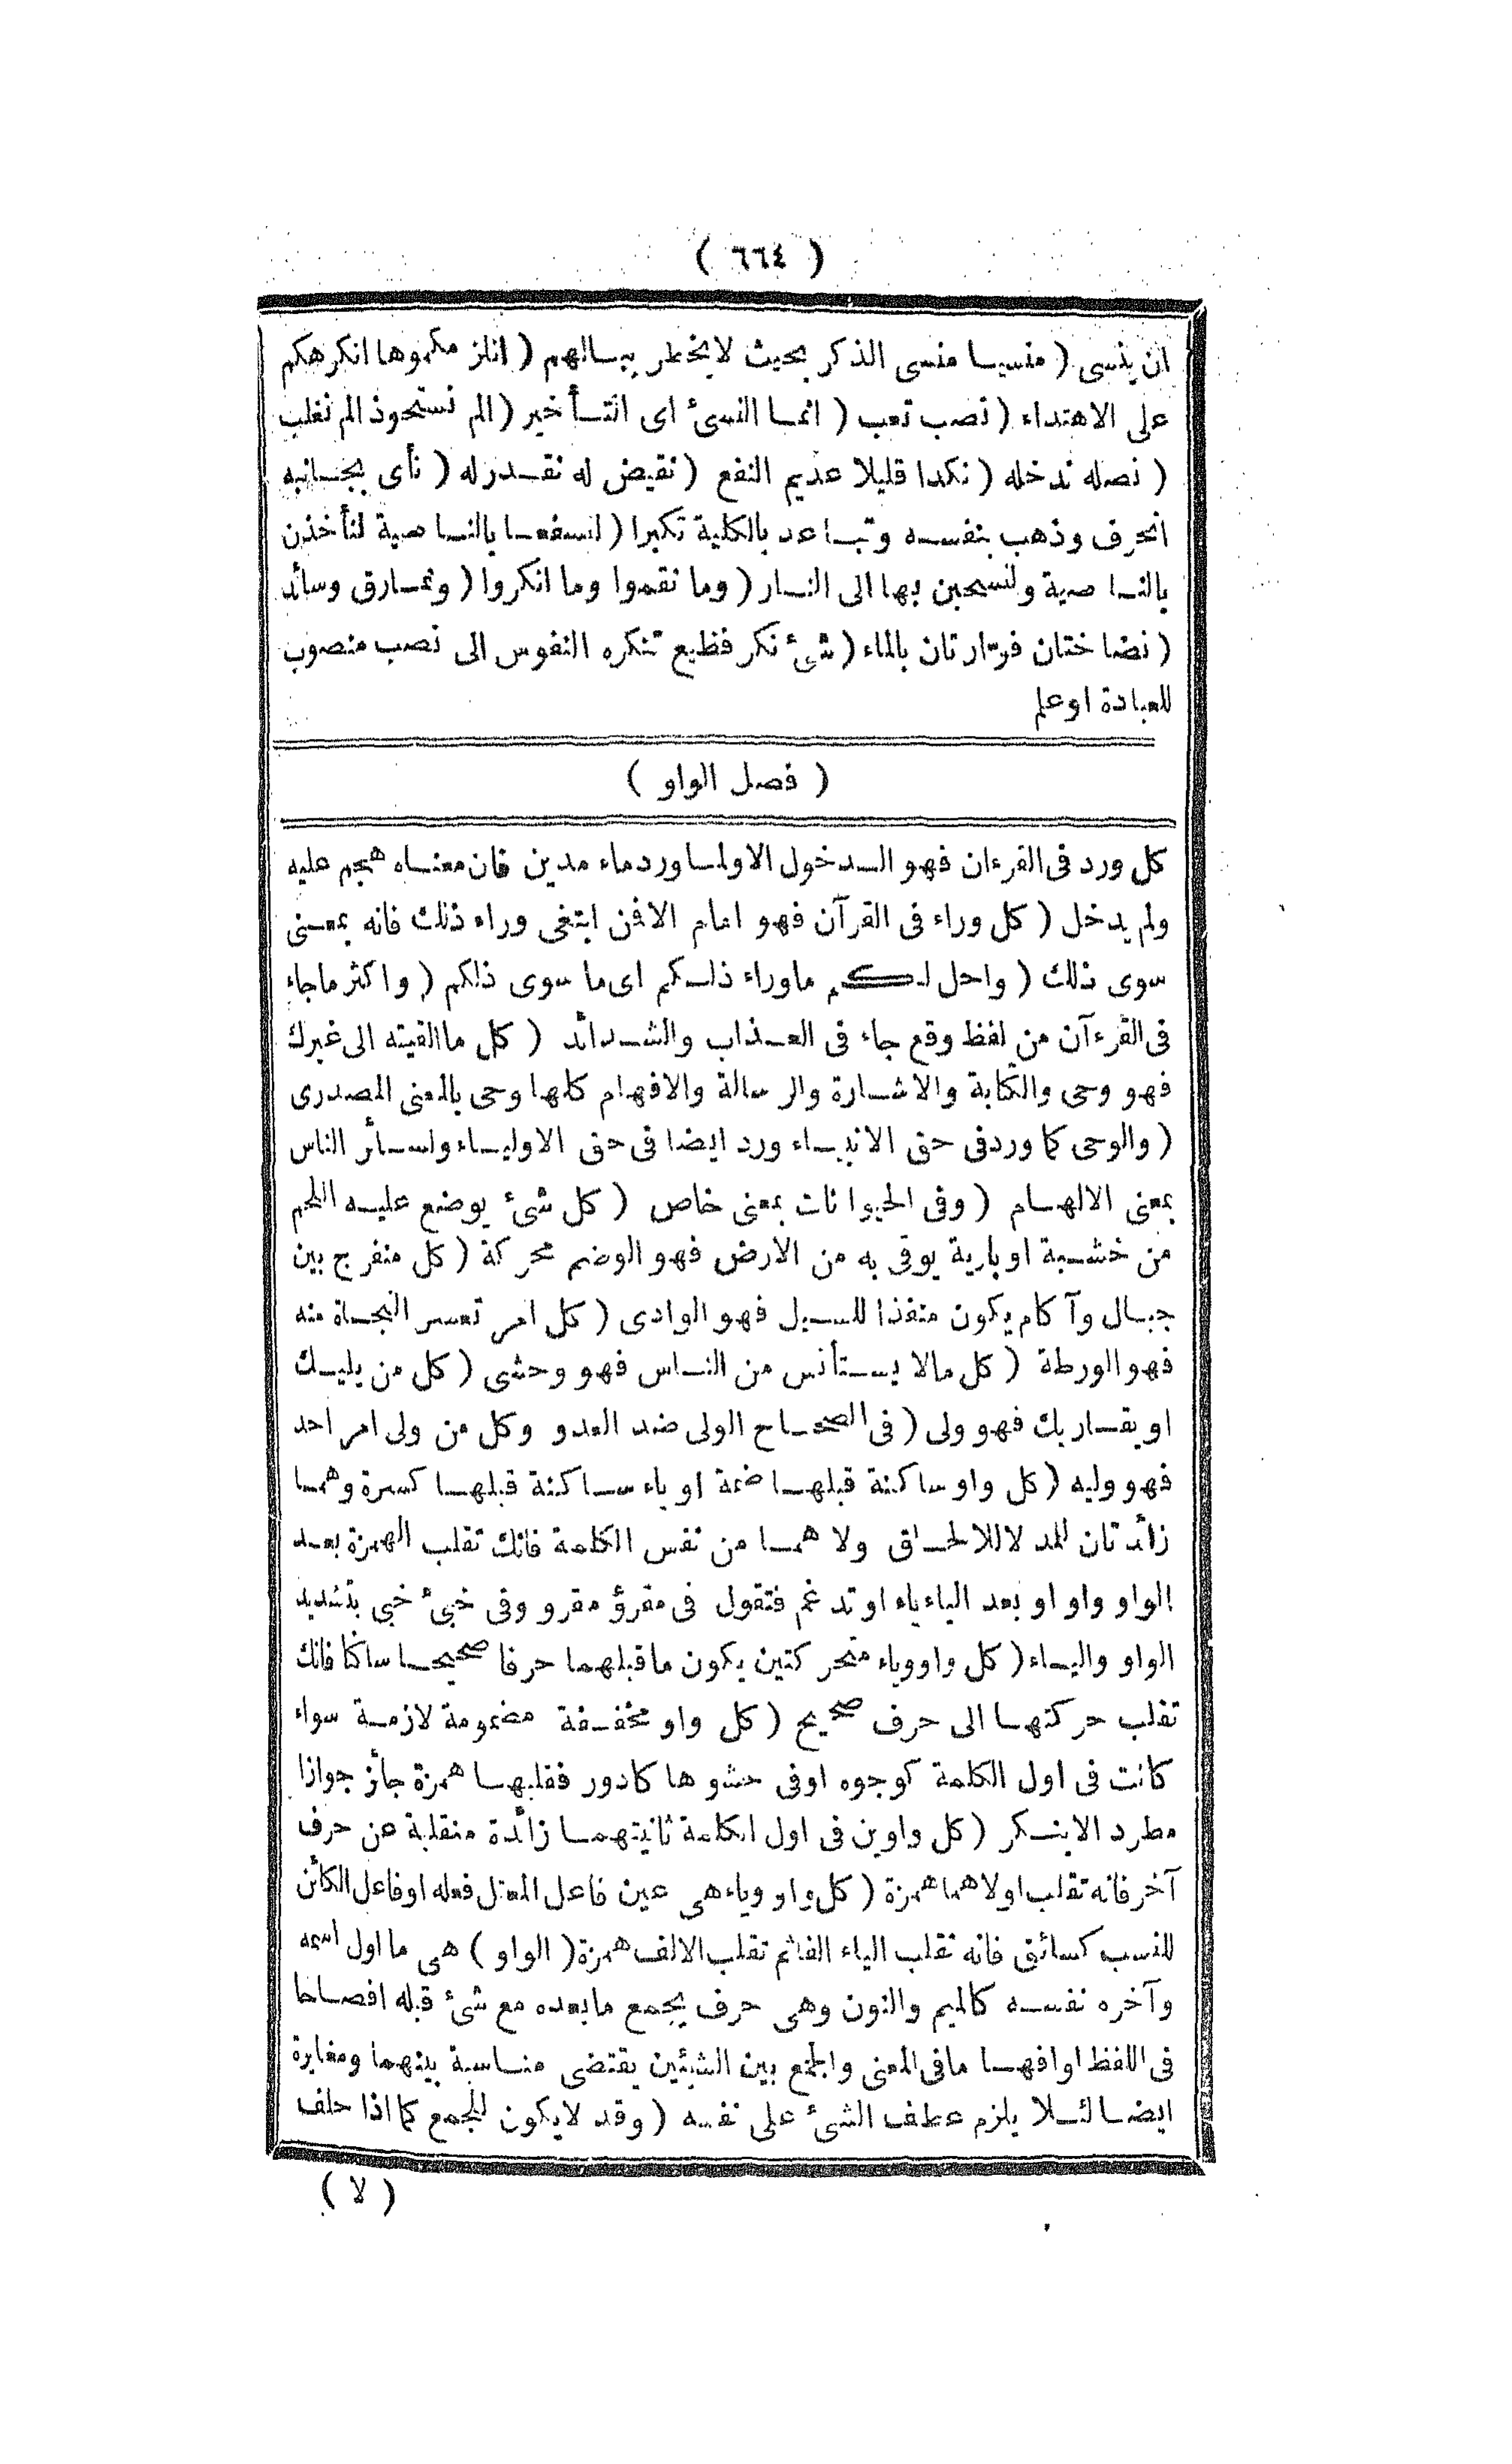 ( ٦٦٤ )
ان ينسى ( منسيا منسى الذكر بحيث لايخطر ببالهم ( انلزمكموها انكرهكم
على الاهتداء ( نصب تعب ( انما النسئ اى التأخير ( الم نستحوذ الم نغلب
( نصله ندخله ( نكدا قليلا عديم النفع ( نقيض له نقدرله ( نأى بجانبه
انحرف وذهب بنفسه وتباعد بالكلية تكبرا ( لنسفعا بالناصية لنأخذن
بالناصية ولنسحبن بها الى النار ( وما نقموا وما انكروا ( ونمارق وسائد
( نضاختان فوّارتان بالماء ( شئ نكر فظيع تنكره النفوس الى نصب منصوب
للعبادة اوعلم
( فصل الواو )
كل ورد فى القرءان فهو الدخول الاولما ورد ماء مدين فان معناه هجم عليه
ولم يدخل ( كل وراء فى القرآن فهو امام الافمن ابتغى وراء ذلك فانه بمعنى
سوى ذلك ( واحل لكم ماوراء ذلكم اى ما سوى ذلكم ( واكثر ماجاء
فى القرءآن من لفظ وقع جاء فى العذاب والشدائد ( كل ماالقيته الى غيرك
فهو وحى والكتابة والاشارة والرسالة والافهام كلها وحى بالمعنى المصدرى
( والوحى كما ورد فى حق الانبياء ورد ايضا فى حق الاولياء ولسائر الناس
بمعنى الالهام ( وفى الحيوانات بمعنى خاص ( كل شئ يوضع عليه اللحم
من خشبة اوبارية يوقى به من الارض فهو الوضم محركة ( كل منفرج بين
جبال وآكام يكون منفذا للسيل فهو الوادى ( كل امر تعسر النجاة منه
فهو الورطة ( كل مالا يستأنس من الناس فهو وحشى ( كل من يليك
او يقاربك فهو ولى ( فى الصحاح الولى ضد العدو وكل من ولى امر احد
فهو وليه ( كل واو ساكنة قبلها ضمة او ياء ساكنة قبلها كسرة وهما
زائدتان للمد لاللالحاق ولا هما من نفس الكلمة فانك تقلب الهمزة بعد
الواو واو او بعد الياء ياء او تدغم فتقول فى مقرؤ مقرو وفى خبئ خبى بتشديد
الواو والياء ( كل واووياء متحركتين يكون ماقبلهما حرفا صحيحا ساكنا فانك
تقلب حركتها الى حرف صحيح ( كل واو مخففة مضمومة لازمة سواء
كانت فى اول الكلمة كوجوه اوفى حشوها كادور فقلبها همزة جائز جوازا
مطرد الاينكر ( كل واوين فى اول الكلمة ثانيتهما زائدة منقلبة عن حرف
آخر فانه تقلب اولاهما همزة ( كل واو وياء هى عين فاعل المعتل فعله اوفاعل الكائن
للنسب كسائق فانه تقلب الياء الفاثم تقلب الالف همزة ( الواو ) هى ما اول اسمه
وآخره نفسه كالميم والنون وهى حرف يجمع مابعده مع شئ قبله افصاحا
فى اللفظ اوافهاما فى المعنى والجمع بين الشيئين يقتضى مناسبة بينهما ومغايرة
ايضا لئلا يلزم عطف الشئ على نفسه ( وقد لايكون للجمع كما اذا حلف
( لا )